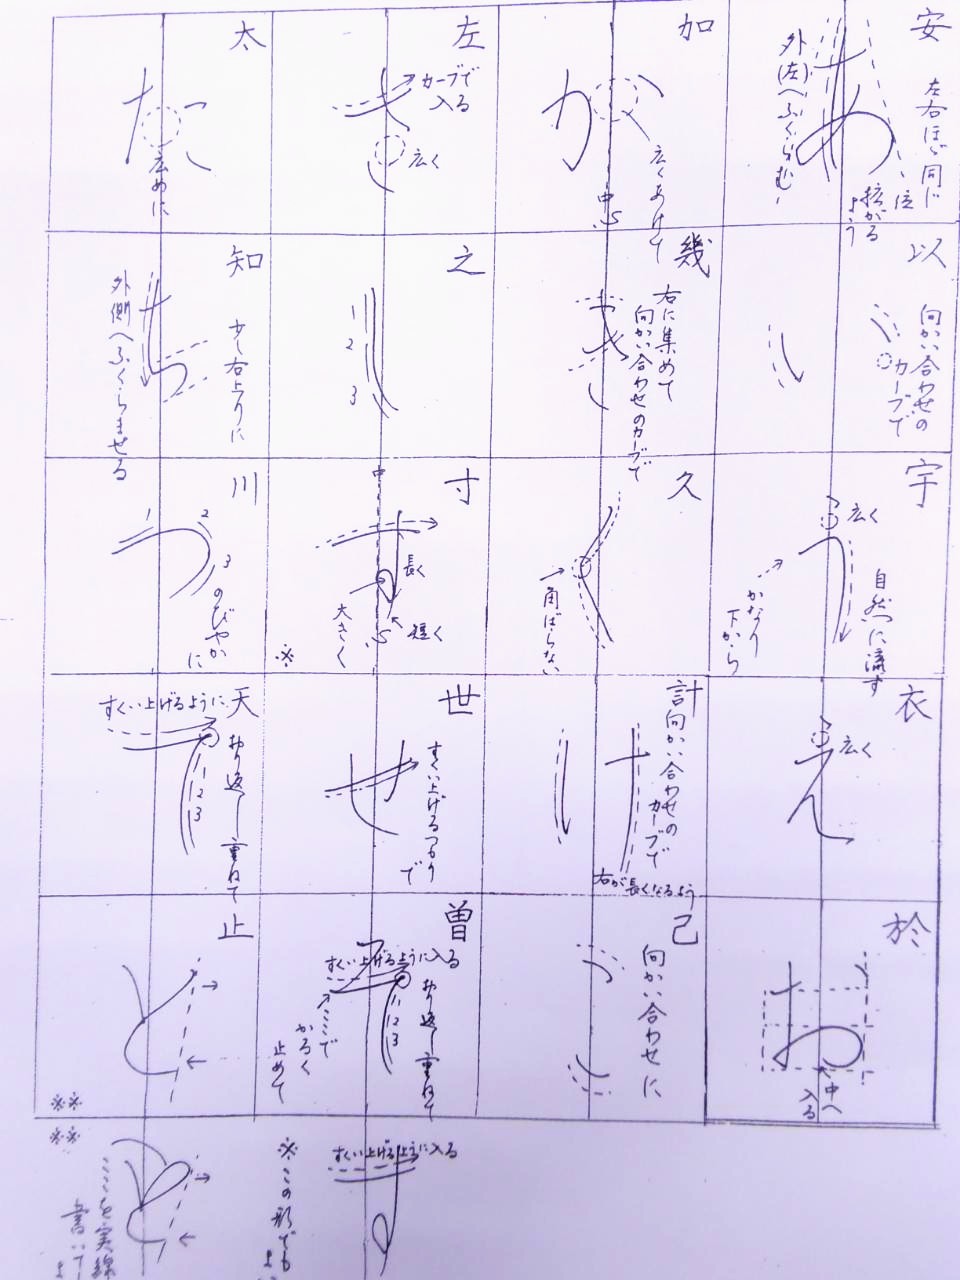 安
左右ほゞ同じ
位
拡がる
よう
あ
外(左)へふくらむ
以
向かい合わせの
カーブで
い
宇
広く
自然に流す
う
かなり
下から
衣
広く
え
於
お
中へ
入る
加
か
広くあけて
中心
幾
右に集めて
向かい合わせのカーブで
き
久
く
角ばらない
計
向かい合わせの
カーブで
け
右が長くなるよう
己
向かい合わせに
こ
左
カーブで
入る
さ
広く
之
1
2
3
し
寸
中
す
長く
大きく
心
短く
※
世
せ
すくい上げるつもり
で
曽
すくい上げるように入る
そ
折り返し重ねて
1
2
3
ここで
かるく
止めて
すくい上げるように入る
※この形でも
太
た
広めに
知
少し右上りに
ち
外側へふくらませる
川
1
2
3
つ
のびやか
に
天
すくい上げるように
て
折り返し重ねて
1
2
3
止
と
※※
※※
ここを実線
書いて